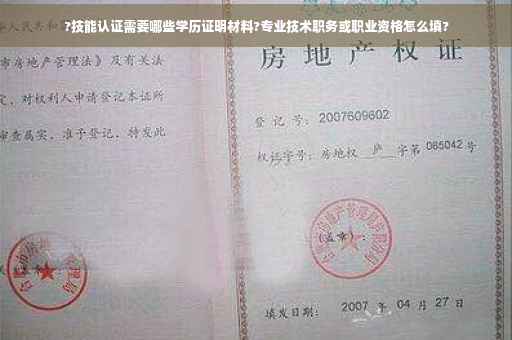 ?技能认证需要哪些学历证明材料?专业技术职务或职业资格怎么填?
市房地产管理法》及有关法
定,对权利人申请登记本证所
审查属实,准予登记,特发此
房地产权证
登记号:2007609602
权证字号:房地权 庐 字第 085042 号
(盖章):
填发日期: 2007 年 04 月 27 日